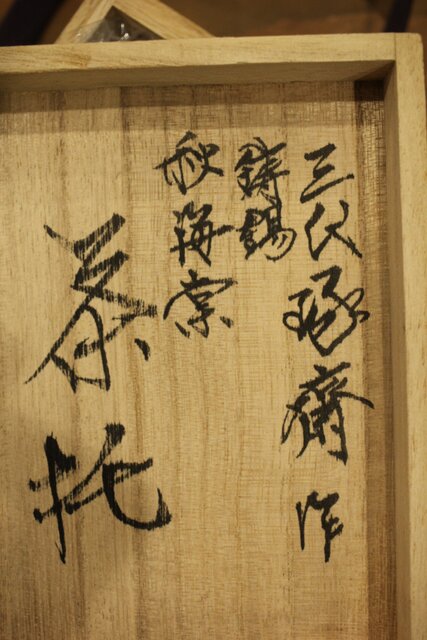 三代琢齋作
鋳錫
秋海棠
茶托